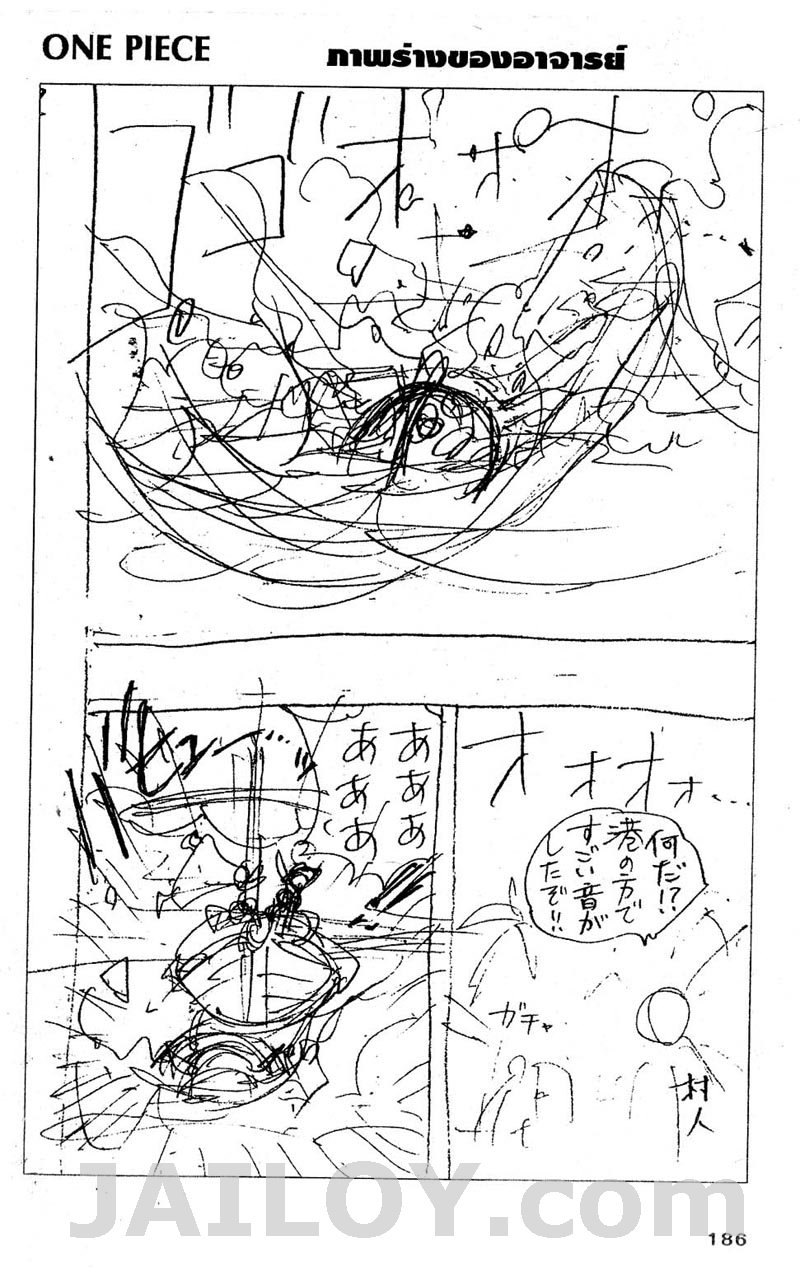 ONE PIECE
ภาพร่างของอาจารย์
ドオオオ
オオオォ…
何だ!?
港の方で
すごい音が
したぞ!!
あああ
あああ
ビュー…ッ
ガチャ
村人
JAILOY.com
186